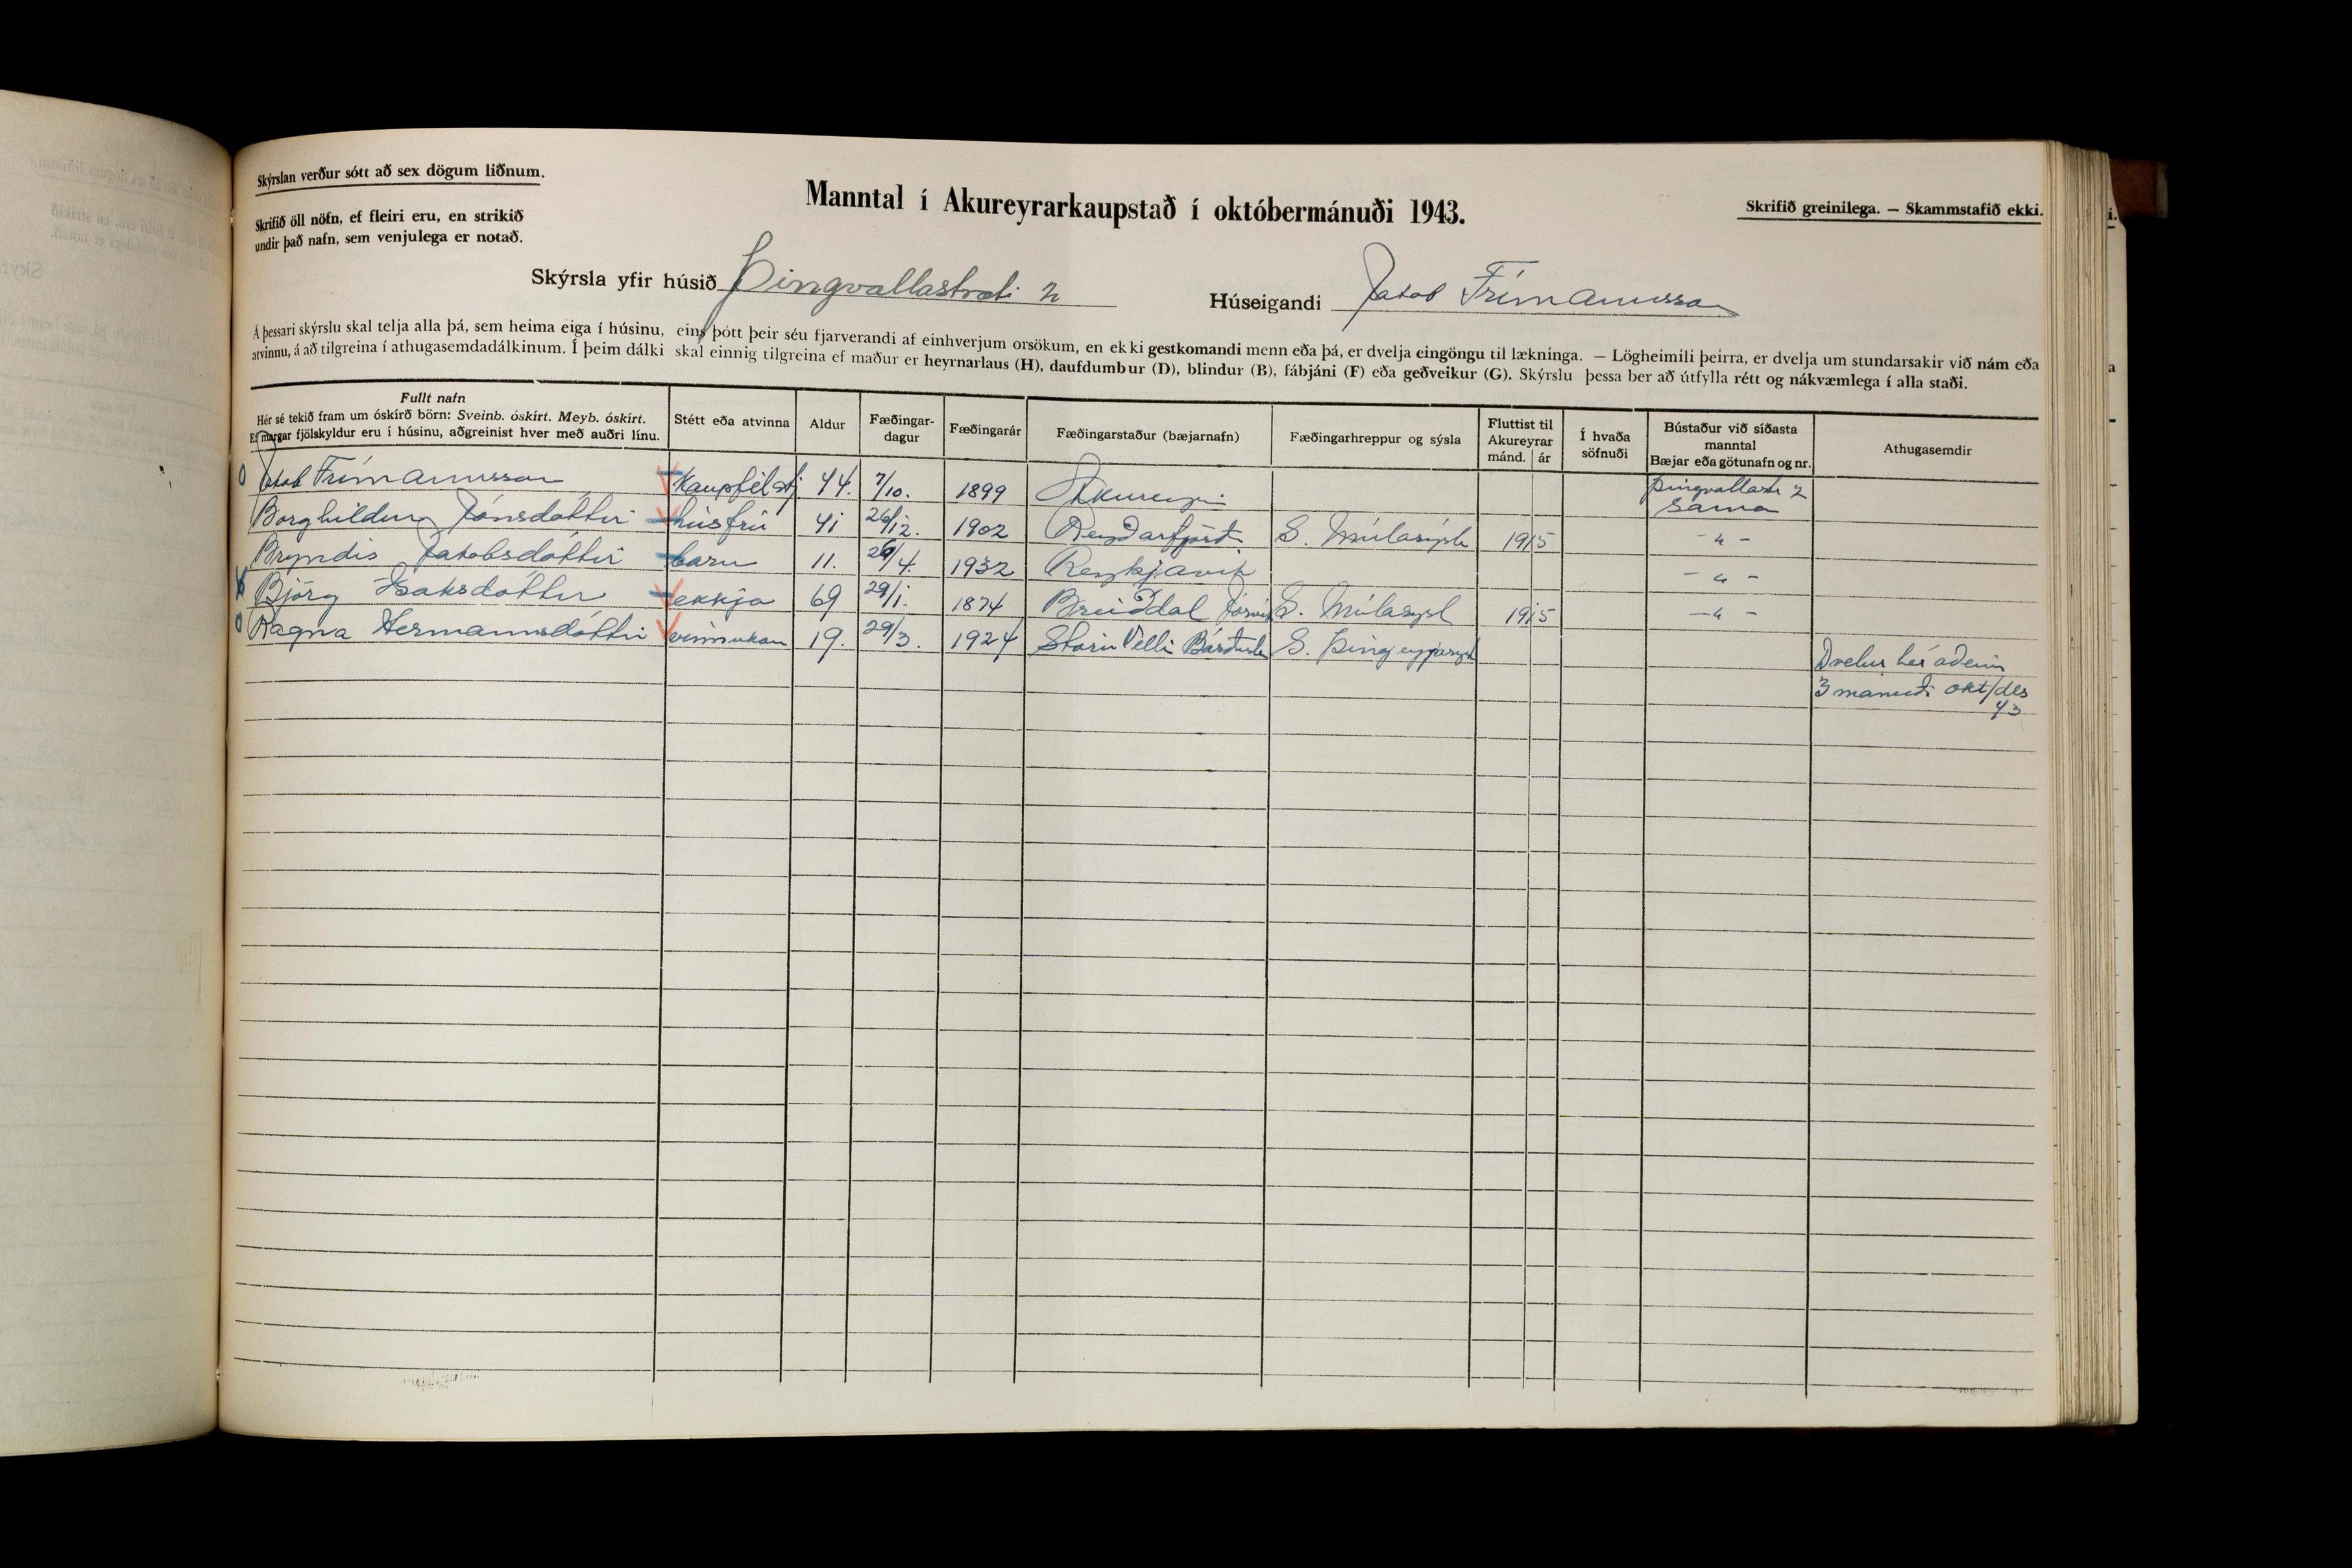 Skýrslan verður sótt að sex dögum liðnum.
Skrifið öll nöfn, ef fleiri eru, en strikið
undir það nafn, sem venjulega er notað.
Manntal í Akureyrarkaupstað í októbermánuði 1943.
Skrifið greinilega. — Skammstafið ekki.
Skýrsla yfir húsið Þingvallastræti 2
Húseigandi Jakob Frímannsson
Á þessari skýrslu skal telja alla þá, sem heima eiga í húsinu, eins þótt þeir séu fjarverandi af einhverjum orsökum, en ekki gestkomandi menn eða þá, er dvelja eingöngu til lækninga. — Lögheimili þeirra, er dvelja um stundarsakir við nám eða
atvinnu, á að tilgreina í athugasemdadálkinum. Í þeim dálki skal einnig tilgreina ef maður er heyrnarlaus (H), daufdumbur (D), blindur (B), fábjáni (F) eða geðveikur (G). Skýrslu þessa ber að útfylla rétt og nákvæmlega í alla staði.
Fullt nafn
Hér sé tekið fram um óskírð börn: Sveinb. óskírt. Meyb. óskírt.
Ef margar fjölskyldur eru í húsinu, aðgreinist hver með auðri línu.
Stétt eða atvinna
Aldur
Fæðingar-
dagur
Fæðingarár
Fæðingarstaður (bæjarnafn)
Fæðingarhreppur og sýsla
Fluttist til
Akureyrar
mánd. ár
Í hvaða
söfnuði
Bústaður við síðasta
manntal
Bæjar eða götunafn og nr.
Athugasemdir
Jakob Frímannsson Kaupfélstj. 44. 7/10. 1899 Akureyri Þingvallastr 2
sama
Borghildur Jónsdóttir húsfrú 41 26/12. 1902 Reyðarfjörð. S. Múlasýsla 1915 - " -
Bryndís Jakobsdóttir barn 11. 26/4. 1932 Reykjavík - " -
Björg Ísaksdóttir ekkja 69 29/1. 1874 Breiðdal S. Múlasýsl 1915 - " -
Ragna Hermannsdóttir vinnukon 19. 29/3. 1924 Stóru Velli Bárðard S. Þingeyjarsýsl
Dvelur hér aðeins
3 mánuði okt/des
43